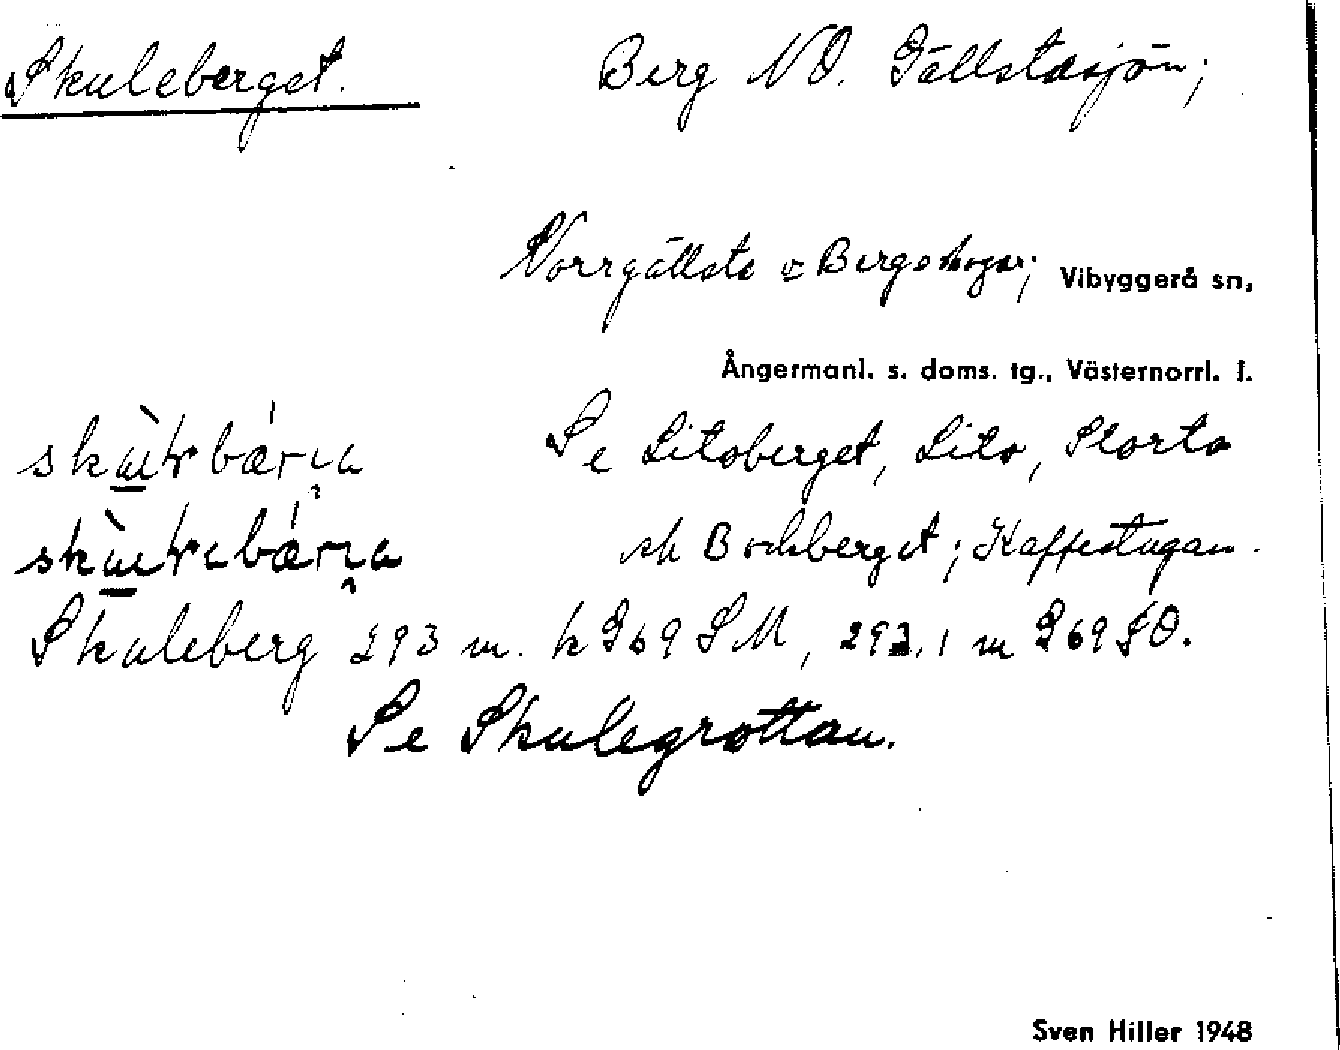 Skuleberget. Berg NO. Gällstasjön;
Norrgällsta o Bergs byar; Vibyggerå sn,
Ångermanl. s. doms. tg., Västernorrl. l.
Se Litoberget, Lito, Storto
och Bockberget; Kaffestugan.
Skuleberg 293 m. k G69 SM, 293,1 m G69 SO.
Se Skulegrottan.
Sven Hiller 1948